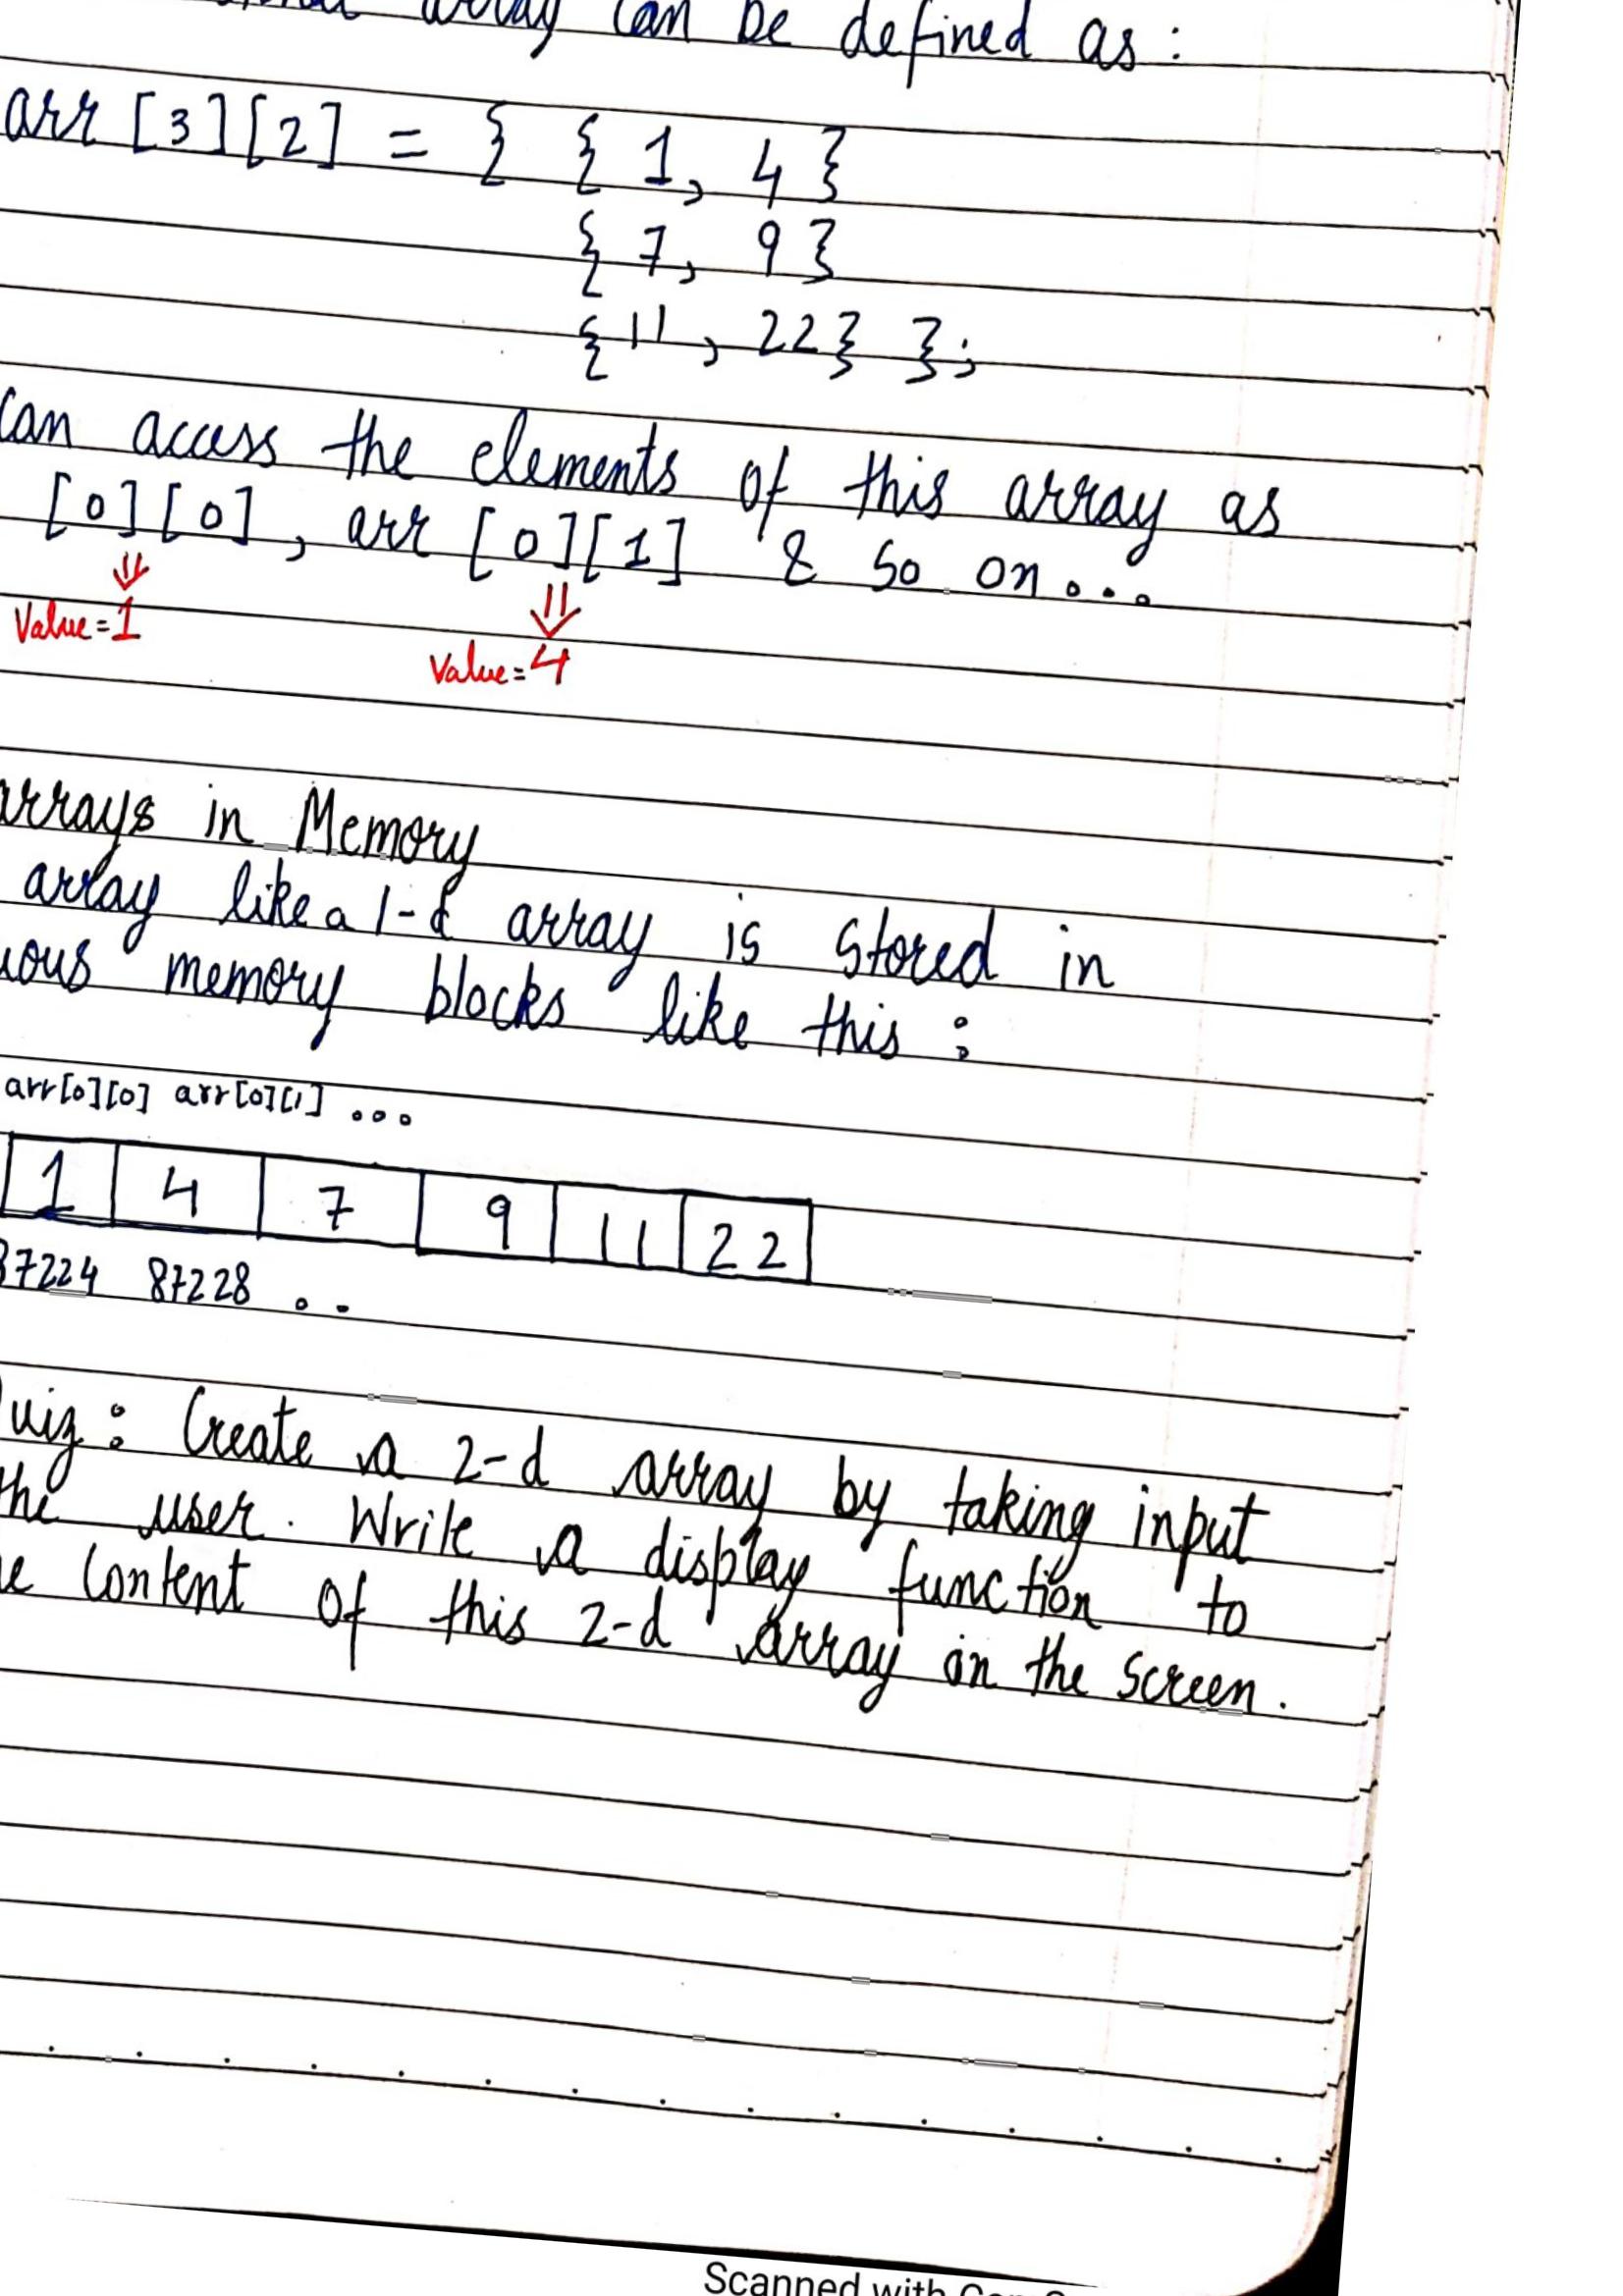 array can be defined as :
arr [3][2] = { { 1, 4 }
{ 7, 9 }
{ 11, 22 } };
can access the elements of this array as
[0][0], arr [0][1] & so on...
Value=1
Value=4
arrays in Memory
array like a 1-d array is stored in
uous memory blocks like this :
arr[0][0] arr[0][1] ...
1 4 7 9 11 22
87224 87228 ..
uiz : Create a 2-d array by taking input
the user. Write a display function to
e Content of this 2-d array on the Screen.
Scanned with